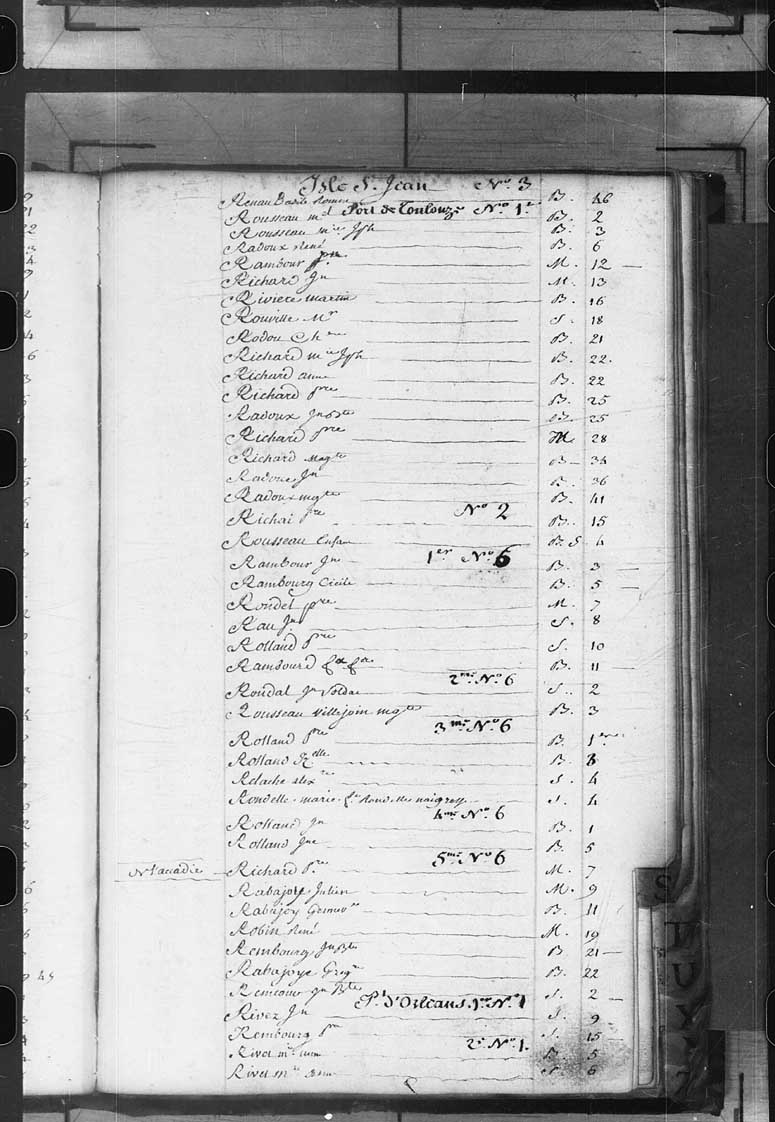 Isle St Jean No 3
Renau Basile Romain B. 46
Port de Toulouze No 1er
Rousseau md B. 2
Rousseau mie Jph B. 3
Radoux René B. 6
Rambour pre M. 12
Richard Jn M. 13
Riviere martin B. 16
Rouville Mr S. 18
Rodou Ch B. 21
Richard mie Jph B. 22.
Richard anne B. 22
Richard pre B. 25
Radoux Jn Bte B. 25
Richard pre M 28
Richard Magte B 34
Radoux Jn B. 36
Radoux mgte B. 41
No 2
Richai pre B. 15
Rousseau Enfan B S 4
1er No 6
Rambour Jne B. 3
Rambourg Cicile B. 5
Rondel pre M. 7
Rau Jn S. 8
Rolland pre S. 10
Rambourd B. 11
2me No 6
Roudal Jn Soldat S. 2
Rousseau Villejoin mgte B. 3
3me No 6
Rolland pre B. 1er
Rolland B 3
Relache alexre S. 4
Rondelle marie S. 4
4me No 6
Rolland Jn B. 1
Rolland Jne B. 5
5me No 6
Nl acadie Richard P.re M. 7
Rabajoye Julien M. 9
Rabajoy B. 11
Robin René M. 19
Rembourg Jn Bte B. 21
Rabajoye Gregre B. 22
Remcour Jn Bte S. 2
Pt d'Orleans. 1er No 1
Rivez Jn S. 9
Rembourg S. 15
2e No 1.
Rivet mie anne B. 5
Rivet mie anne S. 6